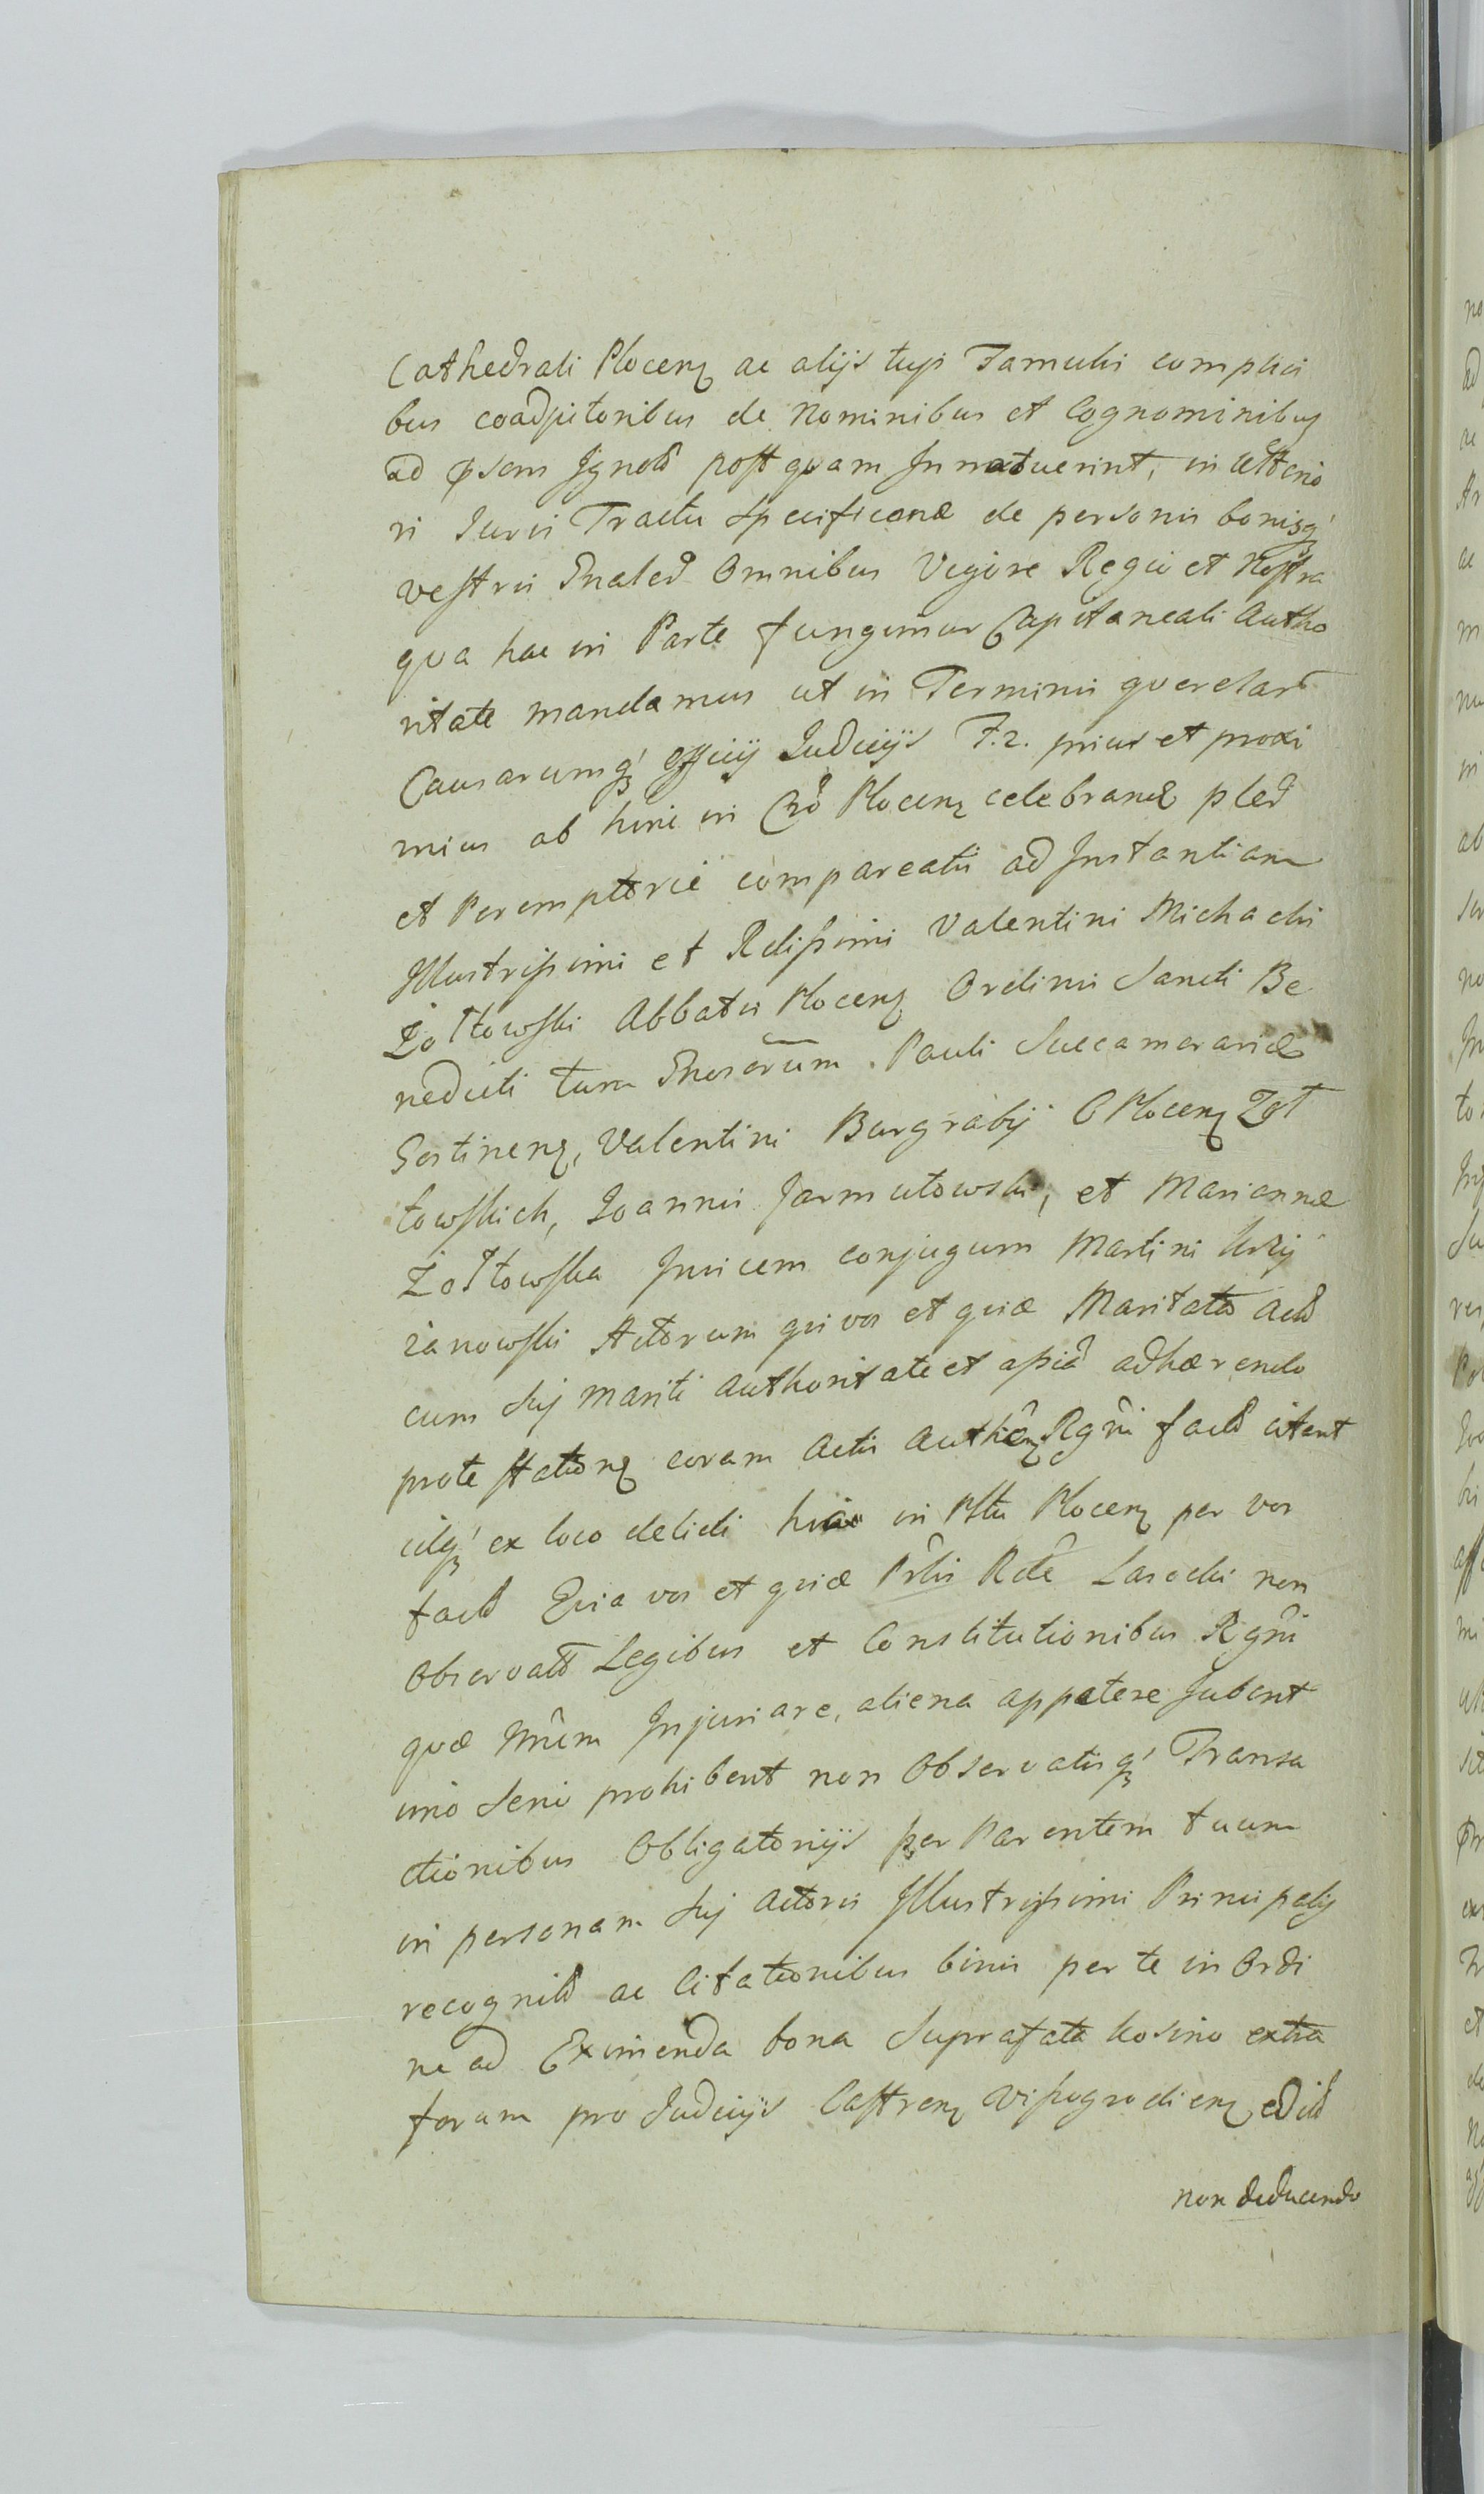 Cathedrali Plocen ac alijs tuji Famulis complici
bus coadjutoribus de Nominibus et Cognominibus
ad psens Ignotis postquam Innotuerint, in ulterio
ri Juris Tractu Specificand de personis bonisq
vestris Gnaleg Omnibus Vigore Regia et Nostra
qua hac in Parte fungimur Capitaneali Autho
ritate mandamus ut in Terminis querelar
Causarumq Officij Judicijs F.2. prius et proxi
mius ab hinc in Cro Plocen celebrand pler
et Peremptorie compareatis ad Instantiam
Illustrissimi et Rdissimi Valentini Michaelis
Zołtowski Abbatis Plocen Ordinis Sancti Be
nedicti tum Gnosorum Pauli Succamerarid
Gostinen, Valentini Burgrabij C Plocen Zoł
towskich, Joannis Jarmutowski, et Marianna
Zołtowska Invicem conjugum Martini Krzy
zanowski Actorum qui vos et quia Maritatâ Actô
cum Sij Mariti Authoritate et assiâ adhærendo
protestation coram Actis Authen Rgni factô citant
idq ex loco delicti huic in Pttu Plocen per vos
factô Quia vos et quia Prlis Rde Lasocki non
Observatô Legibus et Constitutionibus Rgni
qua Nnem Injuriare, aliena appetere Jubent
imo Serio prohibent non Observatisq Transa
ctionibus Obligatorijs per Parentem tuum
in personam Sij Actoris Illustrissimi Principalis
recognitô ac Citationibus binis per te in Ordi
ne ad Eximenda bona Suprafata Kosino extra
forum pro Judicijs Castren Wissogrodien editô
non deducendo